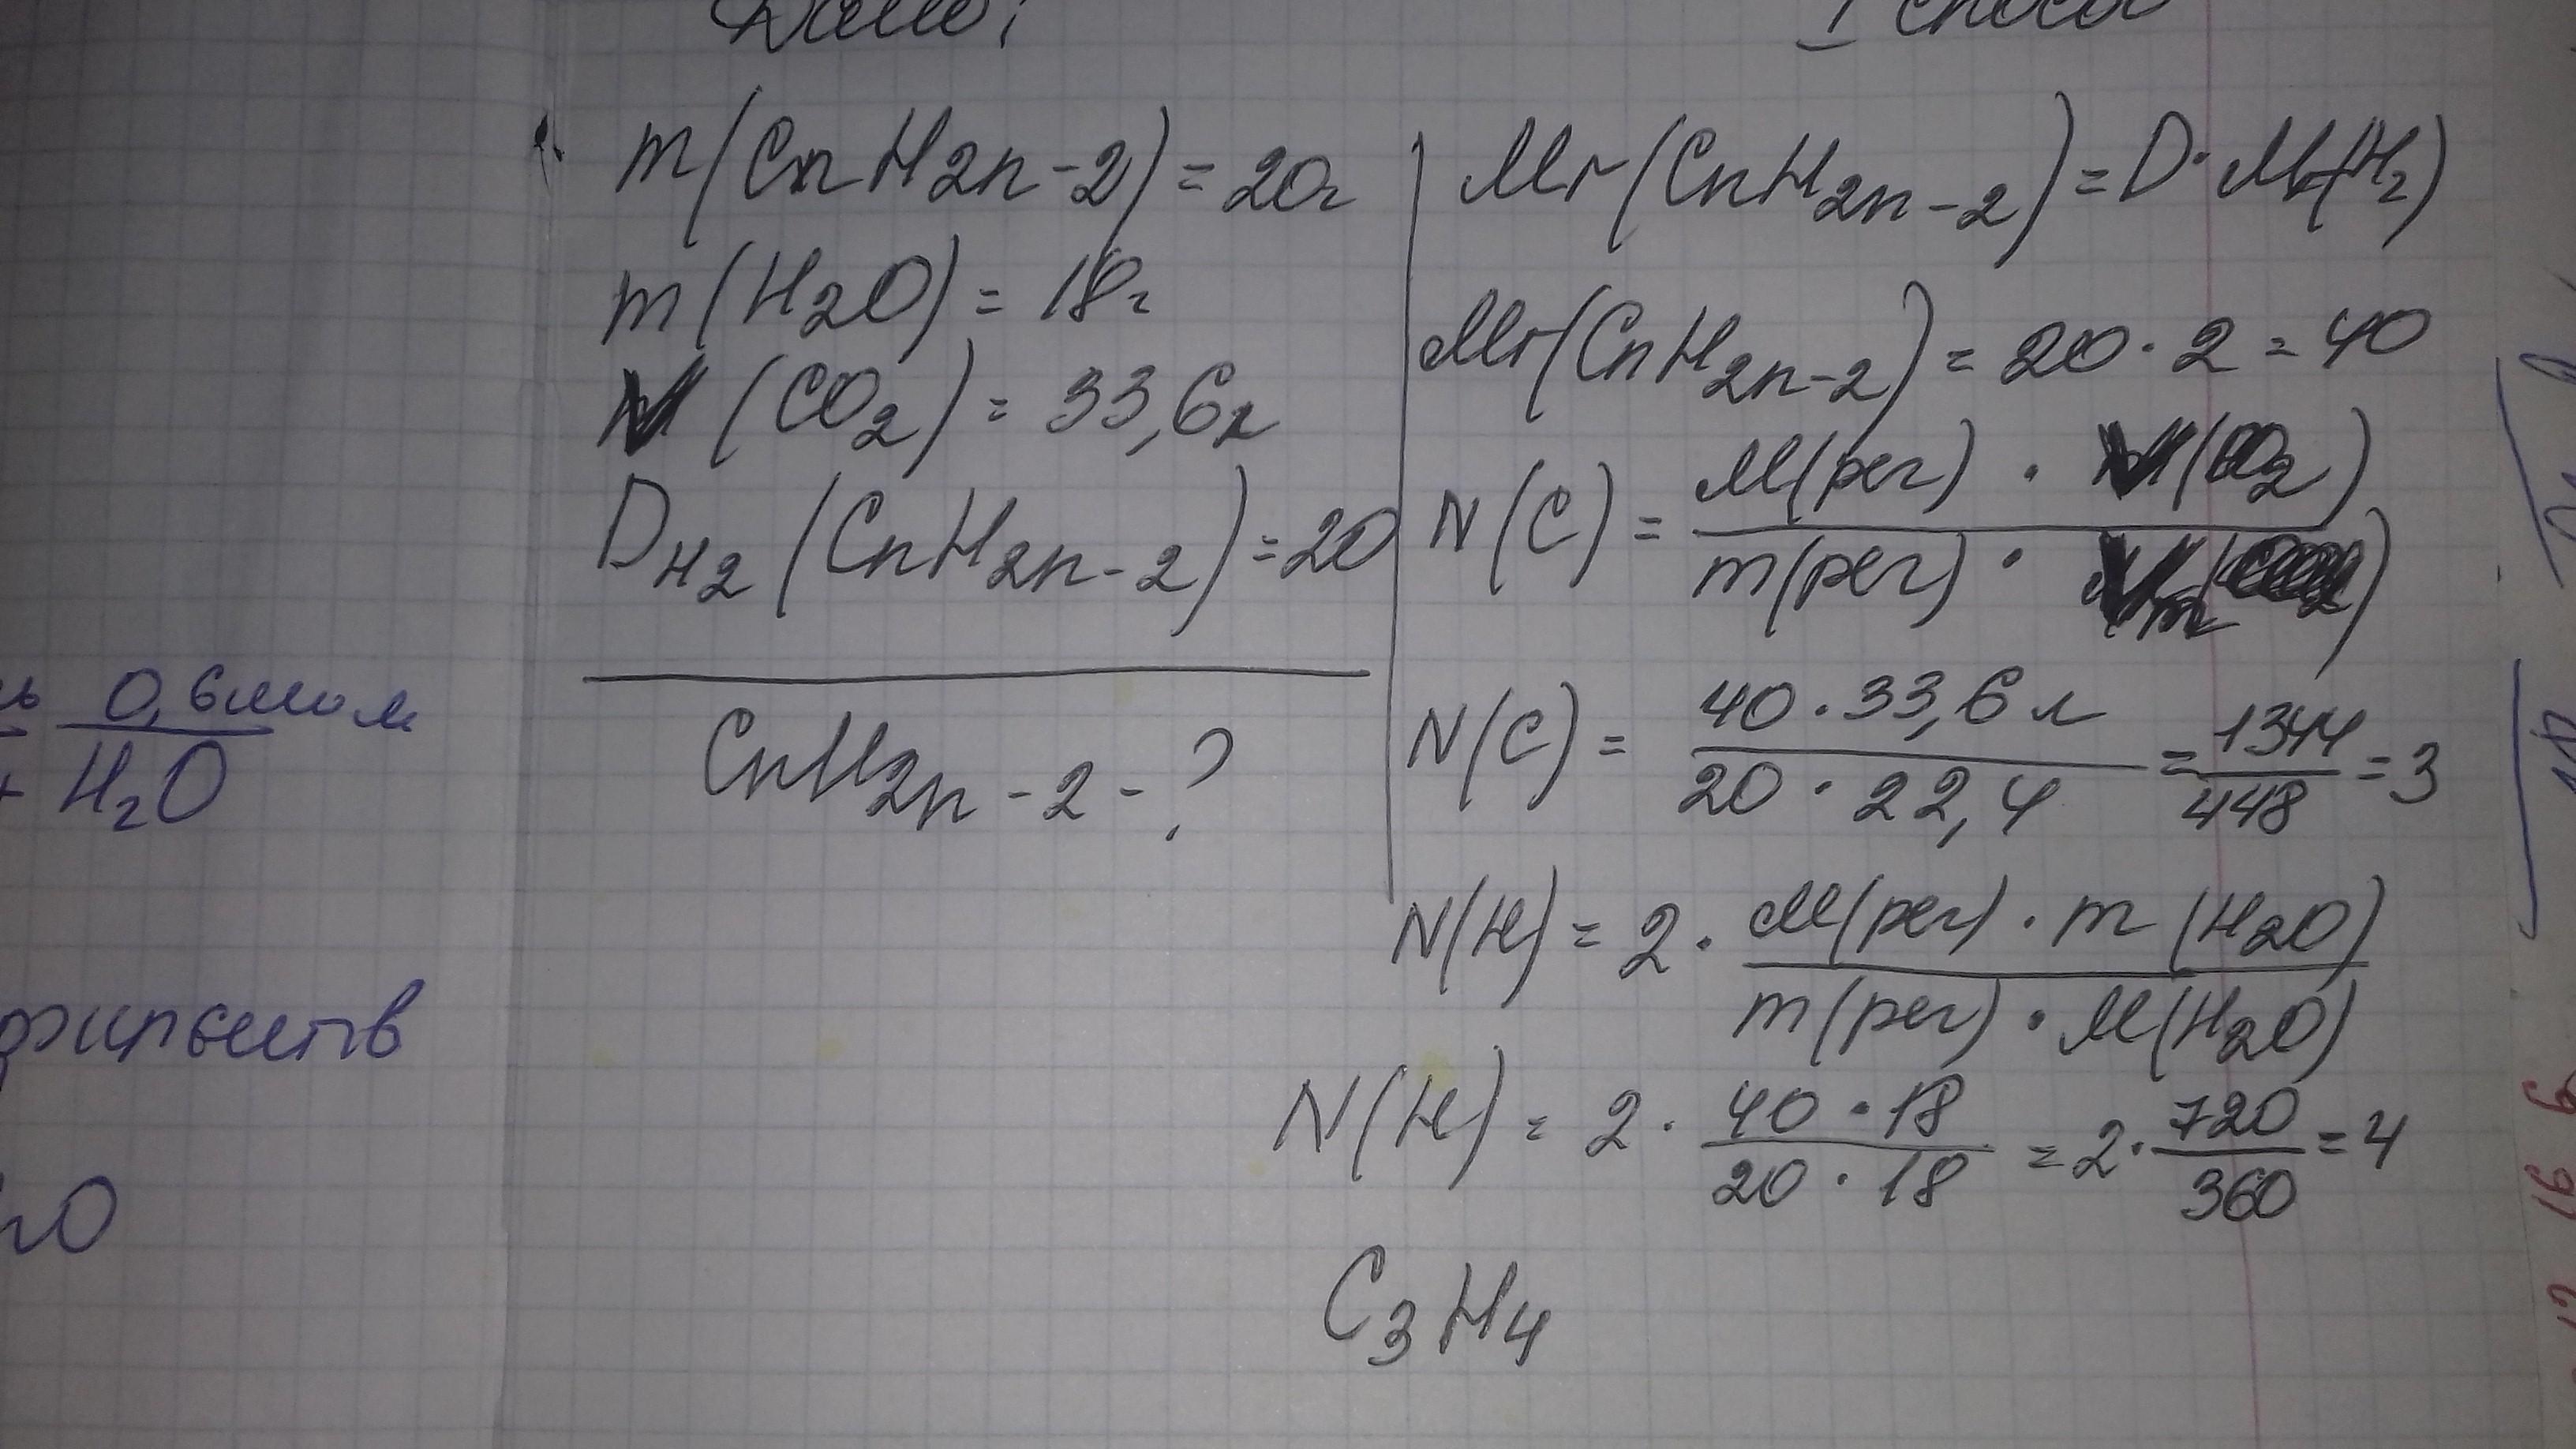 Дано:
m(CnH2n-2) = 20г
m(H2O) = 18г
V(CO2) = 33,6л
DH2(CnH2n-2) = 20
CnH2n-2 - ?
I способ
Mr(CnH2n-2) = D · Mr(H2)
Mr(CnH2n-2) = 20 · 2 = 40
N(C) = M(рег) · V(CO2) / m(рег) · Vm
N(C) = 40 · 33,6 л / 20 · 22,4 = 1344 / 448 = 3
N(H) = 2 · M(рег) · m(H2O) / m(рег) · M(H2O)
N(H) = 2 · 40 · 18 / 20 · 18 = 2 · 720 / 360 = 4
C3H4
0,6моль
+ H2O